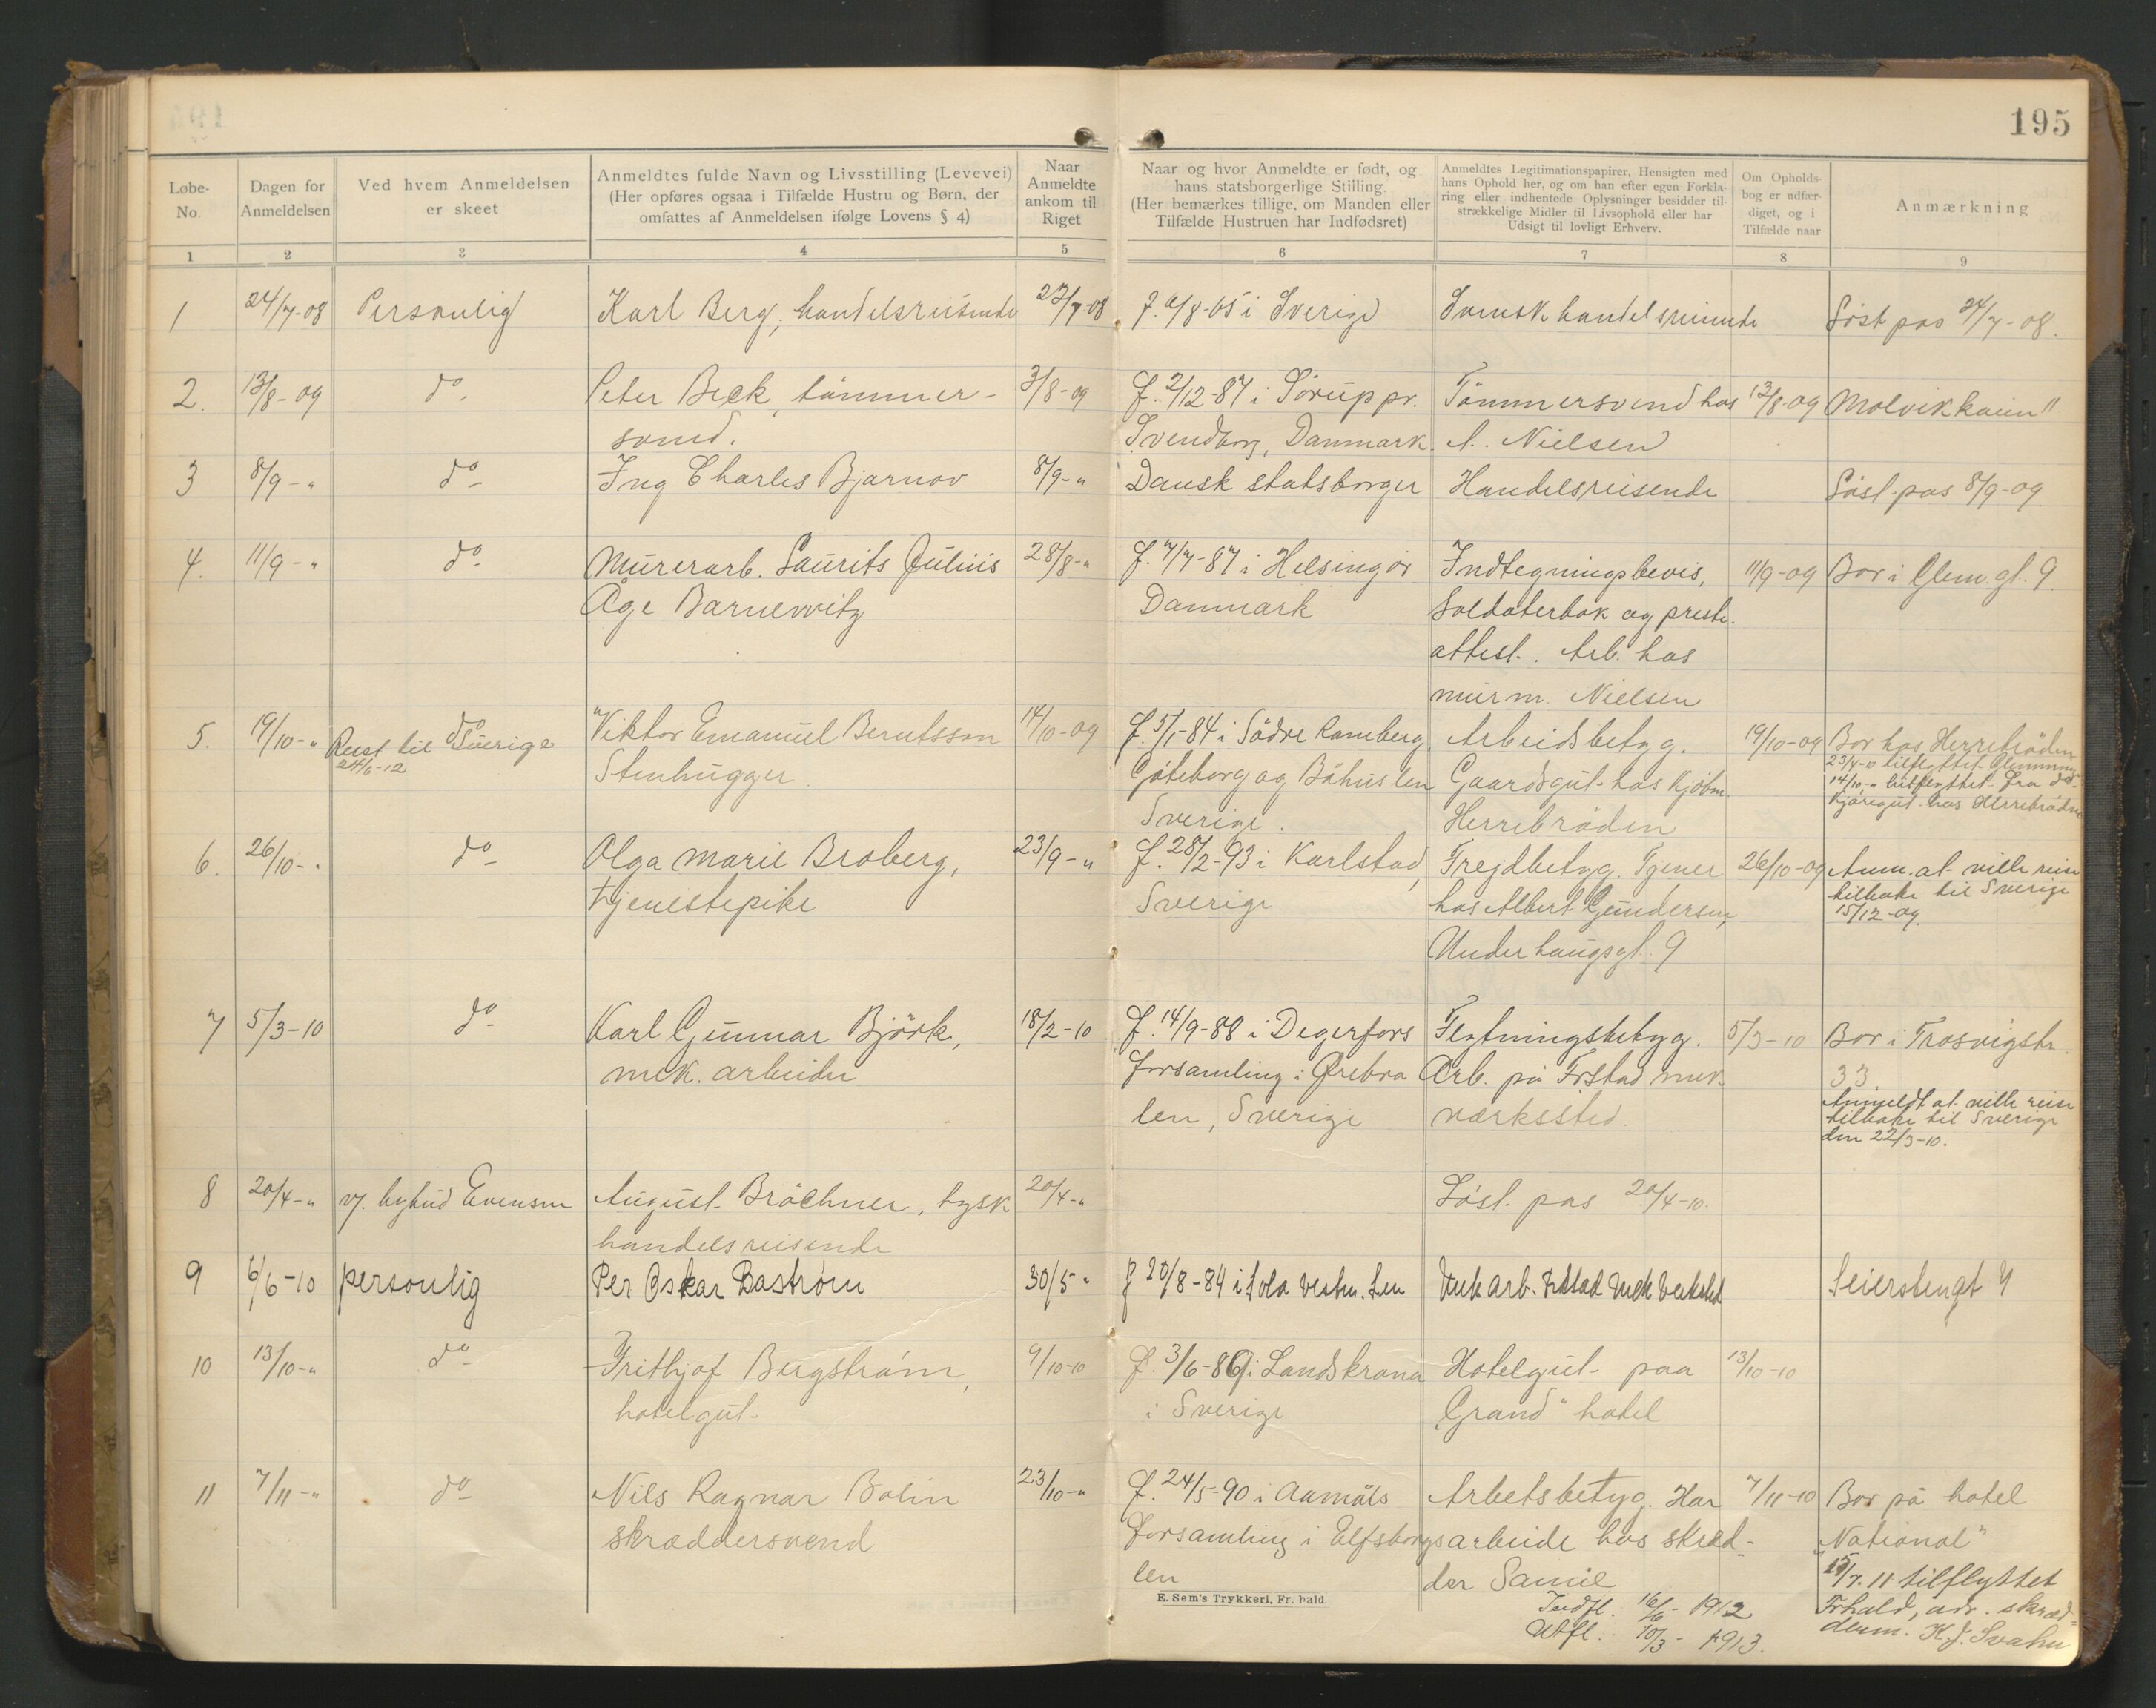 195
Løbe-No.
Dagen for Anmeldelsen
Ved hvem Anmeldelsen er skeet
Anmeldtes fulde Navn og Livsstilling (Levevei) (Her opføres ogsaa i Tilfælde Hustru og Børn, der omfattes af Anmeldelsen ifølge Lovens § 4)
Naar Anmeldte ankom til Riget
Naar og hvor Anmeldte er født, og hans statsborgerlige Stilling. (Her bemærkes tillige, om Manden eller Tilfælde Hustruen har Indfødsret)
Anmeldtes Legitimationspapirer, Hensigten med hans Ophold her, og om han efter egen Forklaring eller indhentede Oplysninger besidder tilstrækkelige Midler til Livsophold eller har Udsigt til lovligt Erhverv.
Om Opholdsbog er udfærdiget, og i Tilfælde naar
Anmærkning
1 2 3 4 5 6 7 8 9
1 24/7-08 Personlig Karl Berg, handelsreisende 23/7-08 f. 6/8-65 i Sverige Svensk handelsreisende Løst pas 24/7-08.
2. 13/8-09 do. Peter Beck, tömmer- 3/8-09 f. 2/12-87 i Sörup pr. Tömmersvend hos 13/8-09 Molvikhaun"
svend. Svendborg, Danmark. A. Nielsen
3 8/9-" do- Ing Charles Bjarnov 8/9-" Dansk statsborger Handelsreisende Løst pas 8/9-09
4. 11/9-" do- Murerarb. Laurits Julius 28/8-" f. 7/7-87 i Helsingør Indtegningsbevis, 11/9-09 Bor i Glem. gt. 9.
Åge Barnewitz Danmark Soldaterbok og preste-
attest. Arb. hos
murm. Nielsen
5. 19/10-" do Viktor Emanuel Berntsson 14/10-09 f. 5/1-84 i Södre Ramberg, Arbeidsbetyg. 19/10-09 Bor hos Herrebröden
Reist til Sverige
24/6-12
Stenhugger. Göteborg og Båhus len Gaardsgut hos Kjøbm. 23/4-10 tilflyttet Glemminge
14/10-" utflyttet fra do-
Sverige. Herrebröden Kjøregut hos Herrebröden
6. 26/10-" do- Olga Marie Broberg, 23/9-" f. 28/2-93 i Karlstad, Frejdbetyg. Tjener 26/10-09 Anm. at ville reise
tjenestepike Sverige hos Albert Gundersen, tilbake til Sverige
15/12-09.
Underhaugsgt. 9
7 5/3-10 do- Karl Gunnar Björk, 18/2-10 f. 14/9-88 i Degerfors Flytningsbetyg. 5/3-10 Bor i Trosvigstr.
mek. arbeider forsamling i Ørebro Arb. på Fr.stad mek. 33.
len, Sverige værksted. Anmeldt at ville reise
tilbake til Sverige
den 22/3-10.
8 20/4-" v. bybud Evensen August Bröchner, tysk 20/4-" Løst. pas 20/4-10.
handelsreisende
9 6/6-10 personlig Per Oskar Baström 30/5-" f 20/8-84 i Sala Vestm. Len Mek arb. Frdstad Mek Verksted Seierstengt 4
10 13/10-" do- Frithjof Bergström, 9/10-10 f. 3/6-86 i Landskrona Hotelgut paa 13/10-10
hotelgut- i Sverige "Grand" hotel
11 7/11-" do- Nils Ragnar Bolin 23/10-" f. 24/5-90 i Aamåls Arbetsbetyg. Har 7/11-10 Bor på hotel
skræddersvend forsamling i Elfsborgs arbeide hos skræd- "National"
len der Samil 15/7-11 tilflyttet
Indfl. 16/6-1912 Frhald, adr. skræd-
Utfl. 10/3-1913. derm. K. J. Svahn
E. Sem's Trykkeri, Fr.hald.